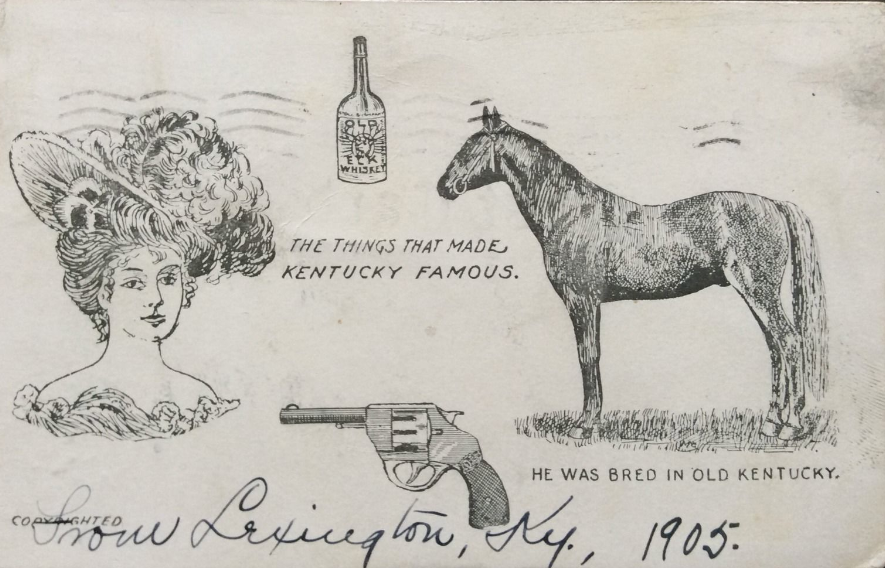 OLD
ELK
WHISKEY
THE THINGS THAT MADE
KENTUCKY FAMOUS.
HE WAS BRED IN OLD KENTUCKY.
COPYRIGHTED
From Lexington, Ky., 1905.